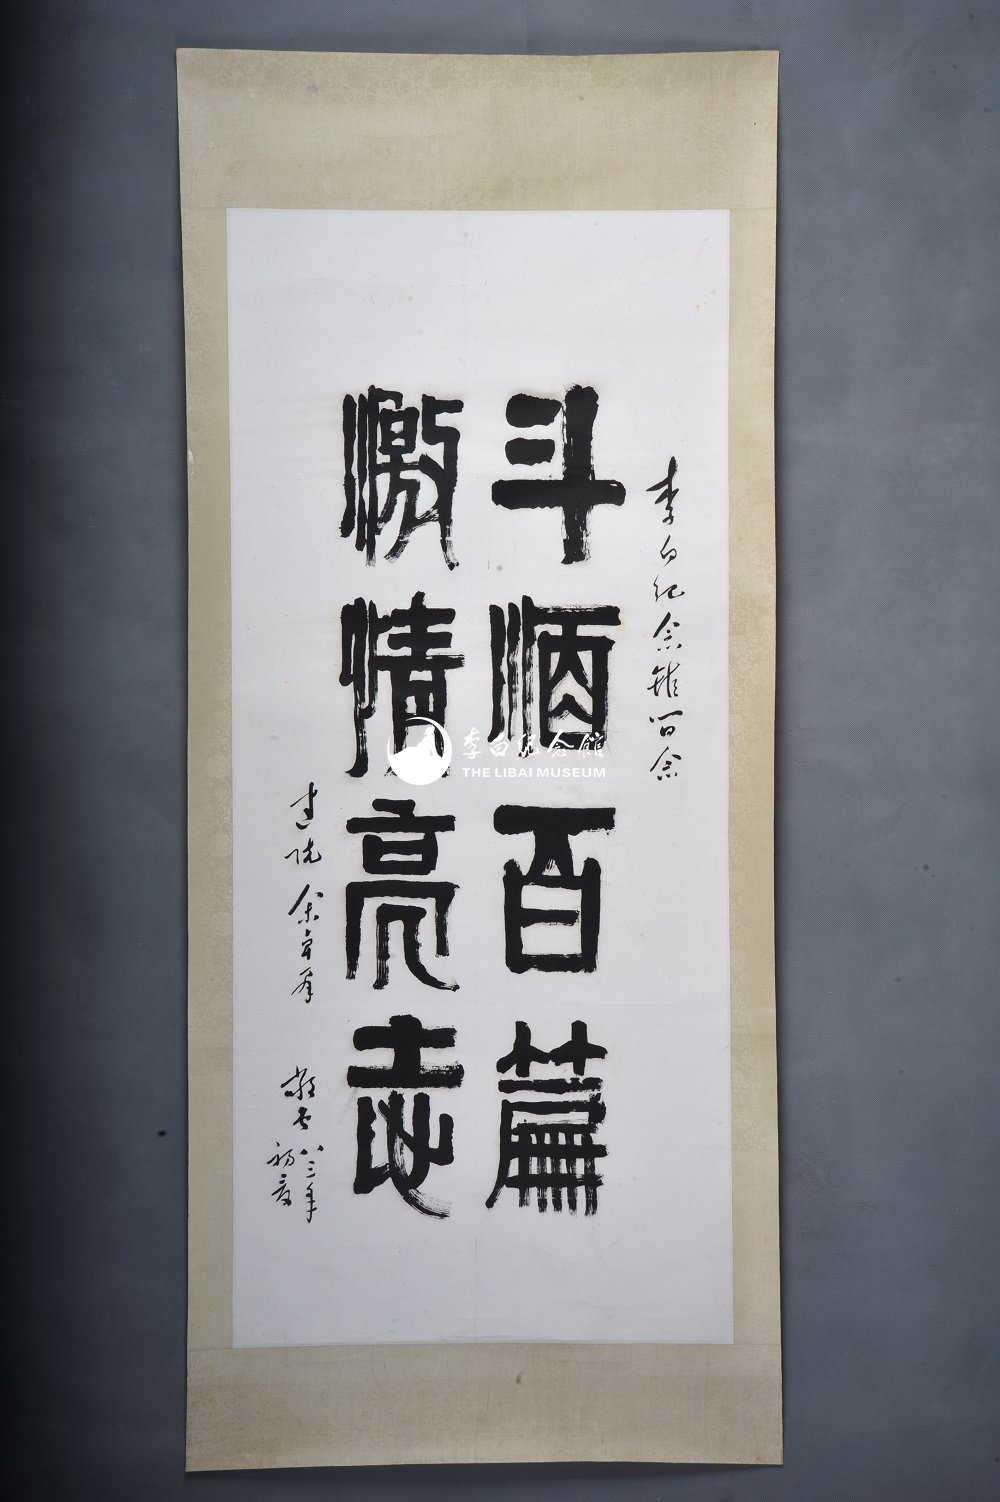 李白纪念馆留念
斗酒百篇
激情亮志
敬书 八三年
初夏
李白纪念馆
THE LIBAI MUSEUM